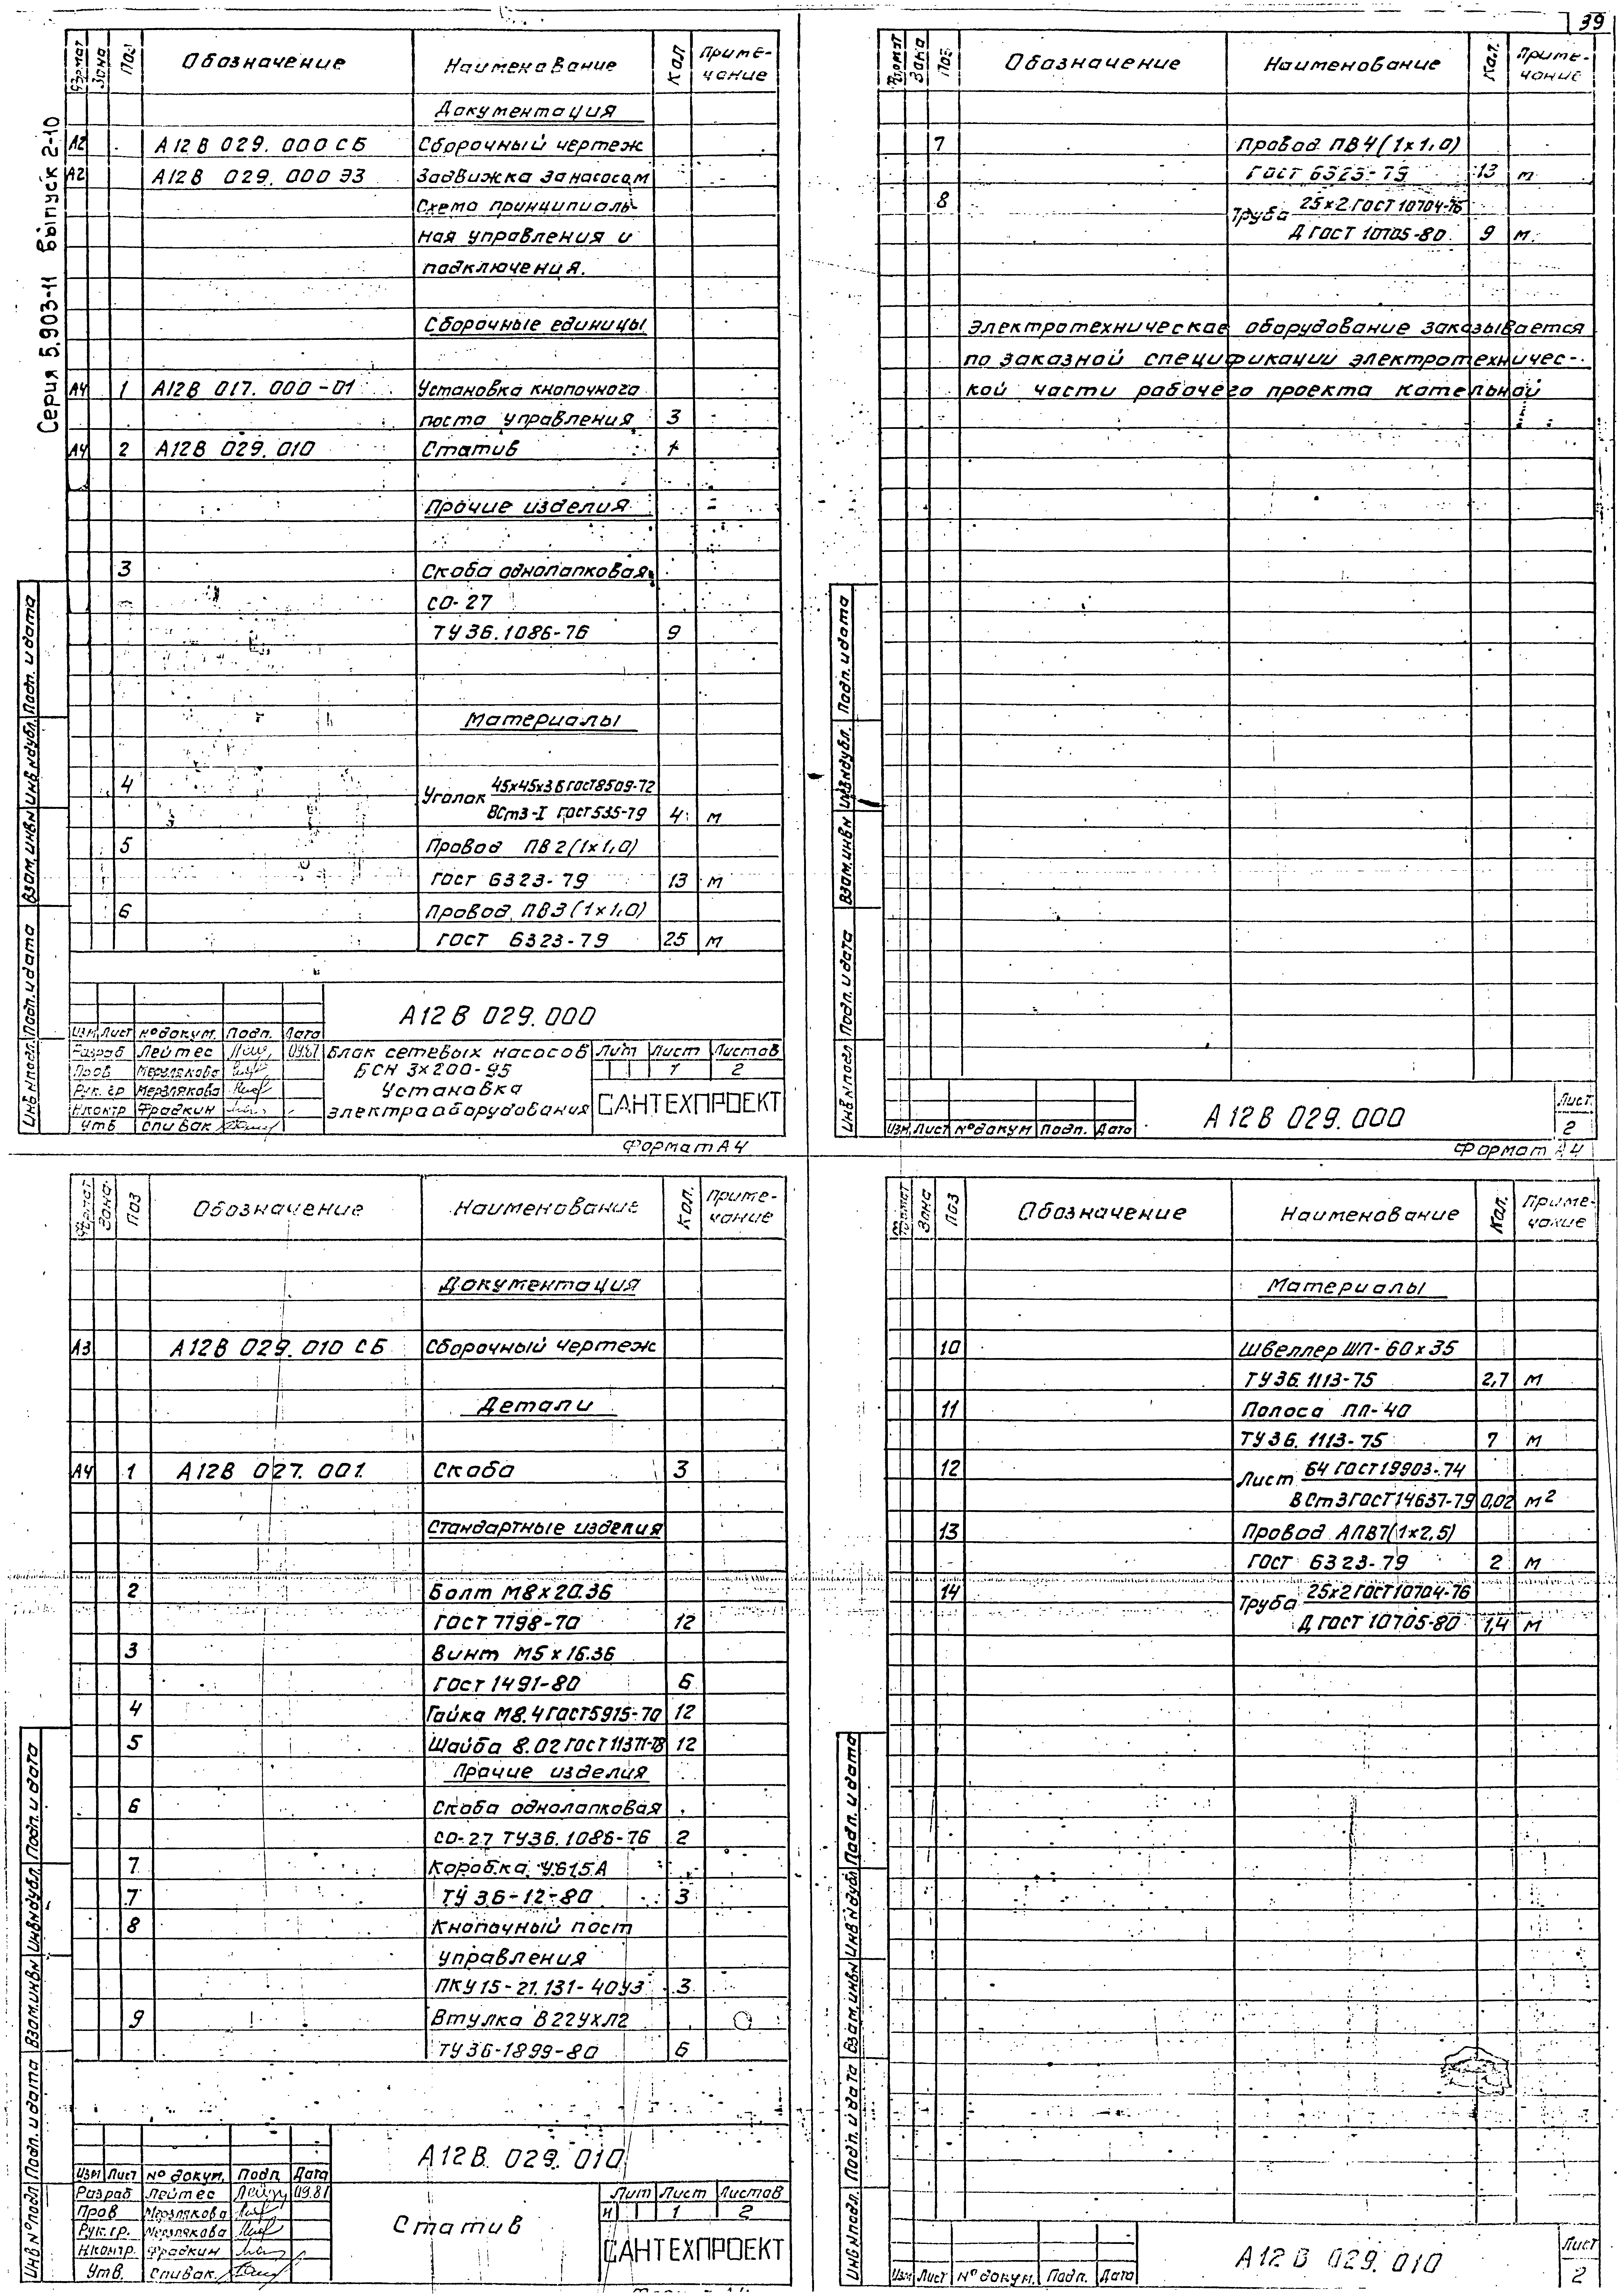 39
Серия 5.903-11 Выпуск 2-10
Формат Зона Поз Обозначение Наименование Кол Приме-
чание
Документация
А2 А12В 029.000 СБ Сборочный чертеж
А2 А12В 029.000 Э3 Задвижка за насосом
Схема принципиаль-
ная управления и
подключения.
Сборочные единицы
А4 1 А12В 017.000-01 Установка кнопочного
поста управления 3
А4 2 А12В 029.010 Статив 1
Прочие изделия
3 Скоба однолапковая
СО-27
ТУ 36.1086-76 9
Материалы
4 Уголок 45х45х3 Б ГОСТ 8509-72
ВСт3-I ГОСТ 535-79 4 м
5 Провод ПВ2(1х1,0)
ГОСТ 6323-79 13 м
6 Провод ПВ3(1х1,0)
ГОСТ 6323-79 25 м
Инв № подл. Подп. и дата Взам. инв № Инв № дубл. Подп. и дата
А12В 029.000
Изм Лист № докум. Подп. Дата
Разраб Лейтес 09.81 Блок сетевых насосов Лит Лист Листов
Пров Мерзлякова БСН 3х200-95 1 2
Рук. гр Мерзлякова Установка
Н.контр Фрадкин электрооборудования САНТЕХПРОЕКТ
Утв Спивак
Формат А4
Формат Зона Поз. Обозначение Наименование Кол. Приме-
чание
7 Провод ПВ4(1х1,0)
ГОСТ 6323-79 13 м
8 Труба 25х2 ГОСТ 10704-76
Д ГОСТ 10705-80 9 м.
Электротехническое оборудование заказывается
по заказной спецификации электротехничес-
кой части рабочего проекта котельной
Инв № подл Подп. и дата Взам. инв № Инв № дубл. Подп. и дата
Изм. Лист № докум Подп. Дата А12В 029.000 Лист.
2
Формат А4
Формат Зона. Поз Обозначение Наименование Кол. Приме-
чание
Документация
А3 А12В 029.010 СБ Сборочный чертеж
Детали
А4 1 А12В 027.001 Скоба 3
Стандартные изделия
2 Болт М8х20.36
ГОСТ 7798-70 12
3 Винт М5х16.36
ГОСТ 1491-80 6
4 Гайка М8.4 ГОСТ 5915-70 12
5 Шайба 8.02 ГОСТ 11371-78 12
Прочие изделия
6 Скоба однолапковая
СО-27 ТУ36.1086-76 2
7 Коробка У615А
7 ТУ 36-12-80 3
8 Кнопочный пост
управления
ПКУ15-21.131-40У3 3
9 Втулка В22УХЛ2
ТУ 36-1899-80 6
Инв № подл Подп. и дата Взам. инв № Инв № дубл. Подп. и дата
А12В 029.010
Изм Лист № докум. Подп Дата
Разраб Лейтес 09.81 Лит Лист Листов
Пров Мерзлякова И 1 2
Рук. гр. Мерзлякова Статив
Н.контр. Фрадкин САНТЕХПРОЕКТ
Утв. Спивак
Формат Зона Поз Обозначение Наименование Кол. Приме-
чание
Материалы
10 Швеллер ШП-60х35
ТУ36.1113-75 2,7 м
11 Полоса ПП-40
ТУ36.1113-75 7 м
12 Лист Б4 ГОСТ 19903-74
ВСт3 ГОСТ 14637-79 0,02 м2
13 Провод АПВ7(1х2,5)
ГОСТ 6323-79 2 м
14 Труба 25х2 ГОСТ 10704-76
Д ГОСТ 10705-80 1,4 м
Инв № подл. Подп. и дата Взам. инв № Инв № дубл Подп. и дата
Изм Лист № докум. Подп. Дата А12В 029.010 Лист
2